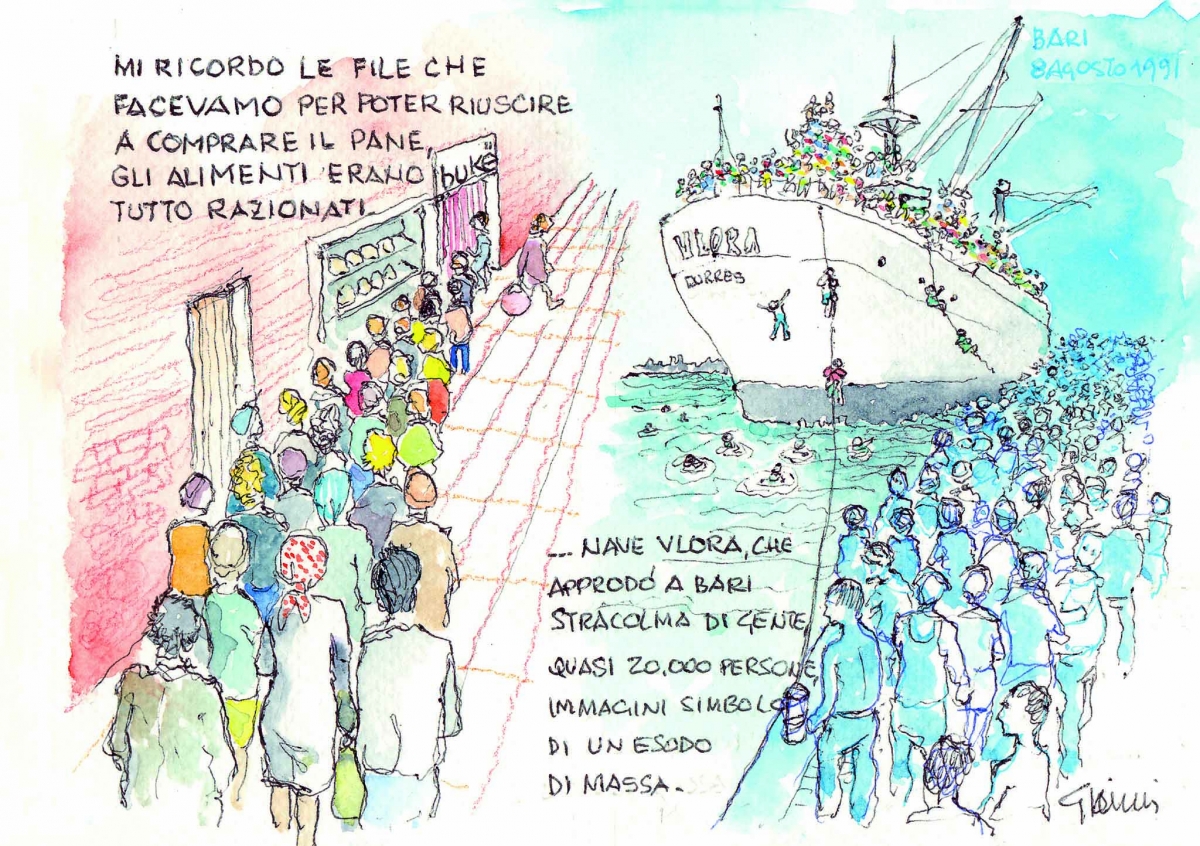 MI RICORDO LE FILE CHE
FACEVAMO PER POTER RIUSCIRE
A COMPRARE IL PANE,
GLI ALIMENTI ERANO
TUTTO RAZIONATI
bUKË
BARI
8 AGOSTO 1991
VLORA
DURRES
... NAVE VLORA, CHE
APPRODÒ A BARI
STRACOLMA DI GENTE
QUASI 20.000 PERSONE,
IMMAGINI SIMBOLO
DI UN ESODO
DI MASSA.